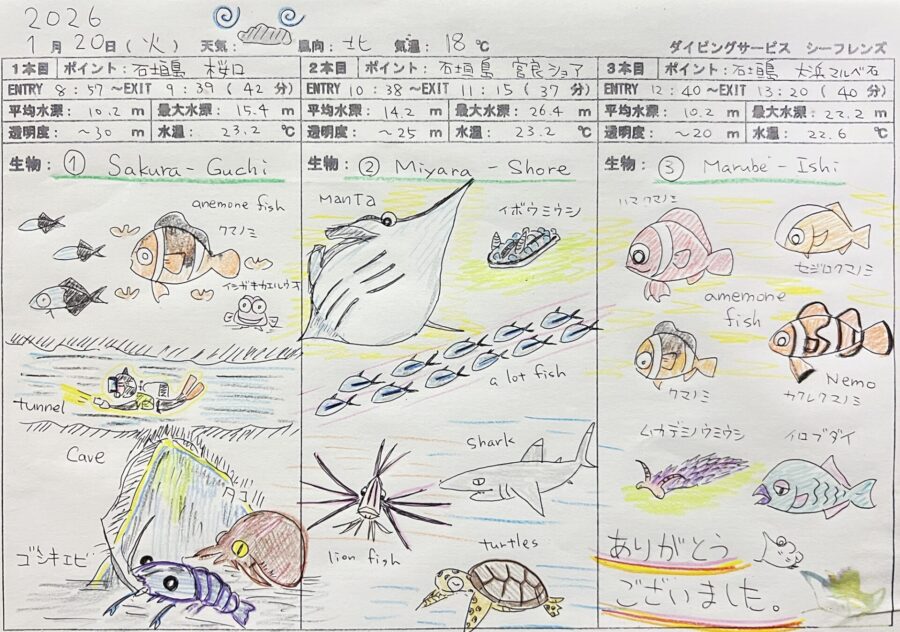 2026
1月20日(火) 天気: 風向: 北 気温: 18℃ ダイビングサービス シーフレンズ
1本目 ポイント: 石垣島 桜口
ENTRY 8:57~EXIT 9:39 (42分)
平均水深: 10.2 m 最大水深: 15.4 m
透明度: ~30 m 水温: 23.2 ℃
生物: ① Sakura-Guchi
anemone fish
クマノミ
イシガキカエルウオ
tunnel
Cave
タコ
ゴシキエビ
2本目 ポイント: 石垣島 宮良ショア
ENTRY 10:38~EXIT 11:15 (37分)
平均水深: 14.2 m 最大水深: 26.4 m
透明度: ~25 m 水温: 23.2 ℃
生物: ② Miyara-Shore
ManTa
イボウミウシ
a lot fish
shark
lion fish
turtles
3本目 ポイント: 石垣島 大浜マルベ石
ENTRY 12:40~EXIT 13:20 (40分)
平均水深: 10.2 m 最大水深: 22.2 m
透明度: ~20 m 水温: 22.6 ℃
生物: ③ Marube-Ishi
ハマクマノミ
セジロクマノミ
amemone
fish
クマノミ
Nemo
カクレクマノミ
ムカデミノウミウシ
イロブダイ
ありがとう
ございました。